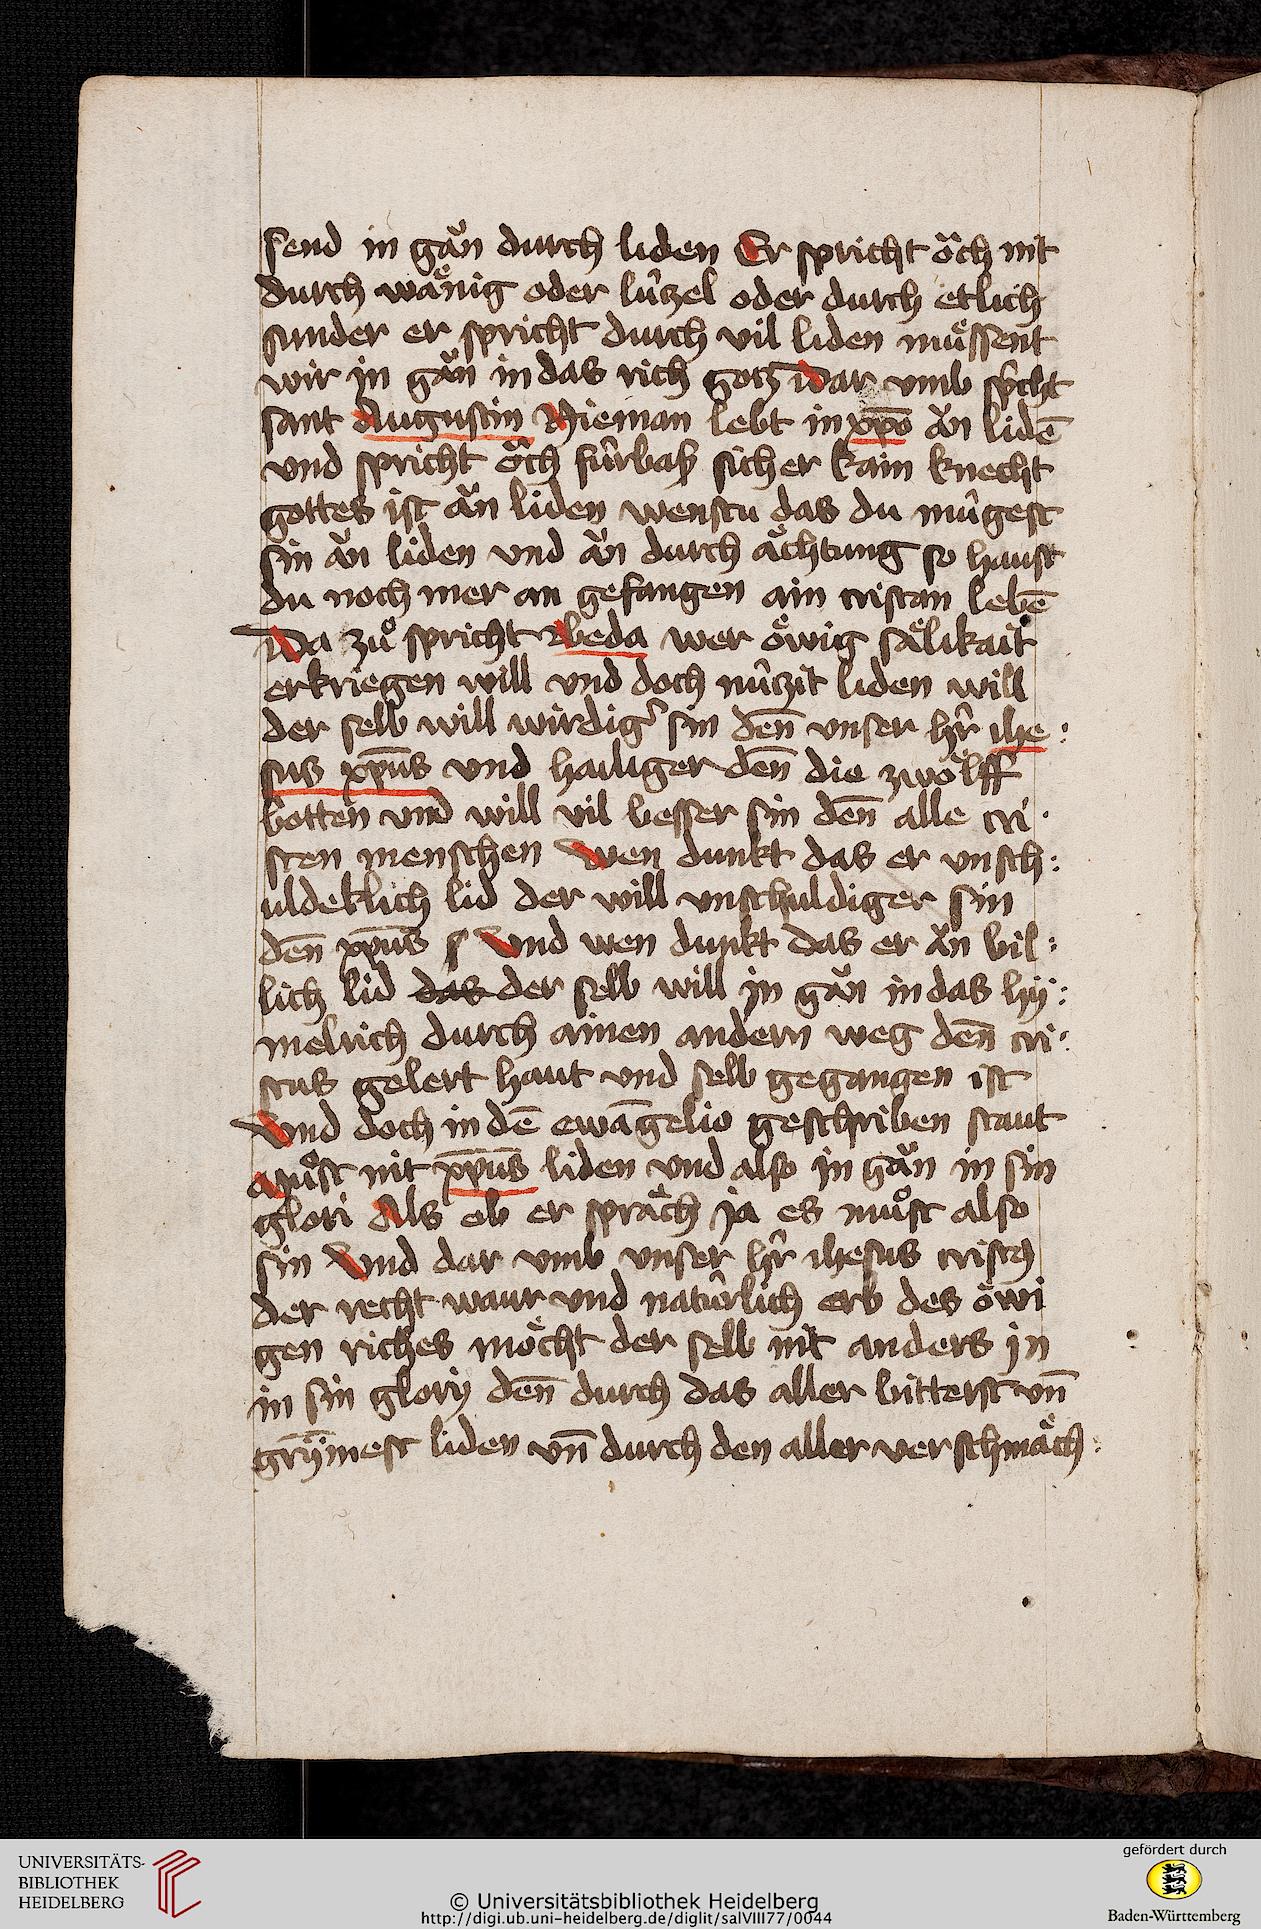 send in gǎn durch liden Er spricht ǒch nit
durch wänig oder lützel oder durch etlich
sunder er spricht durch vil liden müssent
wir in gǎn in das rich gotz Dar vmb sp̄cht
sant Augustin Nieman lebt in xp̄o ǎn lidē
vnd spricht ǒch fürbaß sicher kain knecht
gottes ist ǎn liden wenstu das du mügest
sin ǎn liden vnd ǎn durch ächtung so haust
du noch mer an gefangen ain cristan lebē
Da zuͦ spricht Beda wer öwig sälikait
erkriegen will vnd doch nützit liden will
der selb will wirdigˀ sin den̄ vnser hr̄ ihe:
sus xp̄us vnd hailiger den̄ die zwölff
botten vnd will vil besser sin den̄ alle cri·
sten menschen Wen dunkt das er vnsch:
uldeklich lid der will vnschuldiger sin
den̄ xp̄us Vnd wen dunkt das er ǎn bil:
lich lid das der selb will in gǎn in das hÿ:
melrich durch ainen andern weg den̄ cri:
stus gelert haut vnd selb gegangen ist
Vnd doch in dē ewāgelio geschriben staut
Muͦst nit xp̄us liden vnd also in gǎn in sin
glori Als ob er sprǎch ja es muͦst also
sin Vnd dar vmb vnser hr̄ ihesus cristꝰ
der recht waur vnd natürlich erb des öwi
gen riches möcht der selb nit anders in
in sin glory den̄ durch das aller bitterst vn̄
grȳmest liden vn̄ durch den aller verschmäch:
UNIVERSITÄTS-
BIBLIOTHEK
HEIDELBERG
© Universitätsbibliothek Heidelberg
http://digi.ub.uni-heidelberg.de/diglit/salVIII77/0044
gefördert durch
Baden-Württemberg